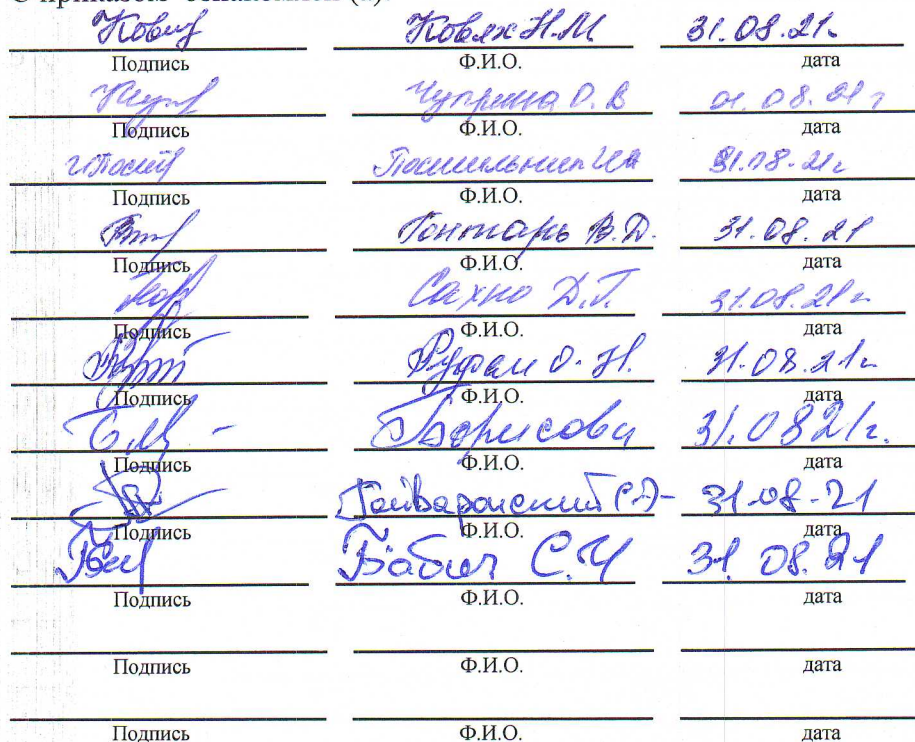 С приказом ознакомлен (а):
Ковях Н.М 31.08.21г.
Подпись Ф.И.О. дата
Чуприна О.В 01.08.21г
Подпись Ф.И.О. дата
31.08.21г
Подпись Ф.И.О. дата
Гонтарь В.Д. 31.08.21
Подпись Ф.И.О. дата
Сахно Д.Г. 31.08.21г
Подпись Ф.И.О. дата
О.Н. 31.08.21г
Подпись Ф.И.О. дата
Борисова 31.0821г.
Подпись Ф.И.О. дата
31.08.21
Подпись Ф.И.О. дата
Бабич С.И 31.08.21
Подпись Ф.И.О. дата
Подпись Ф.И.О. дата
Подпись Ф.И.О. дата